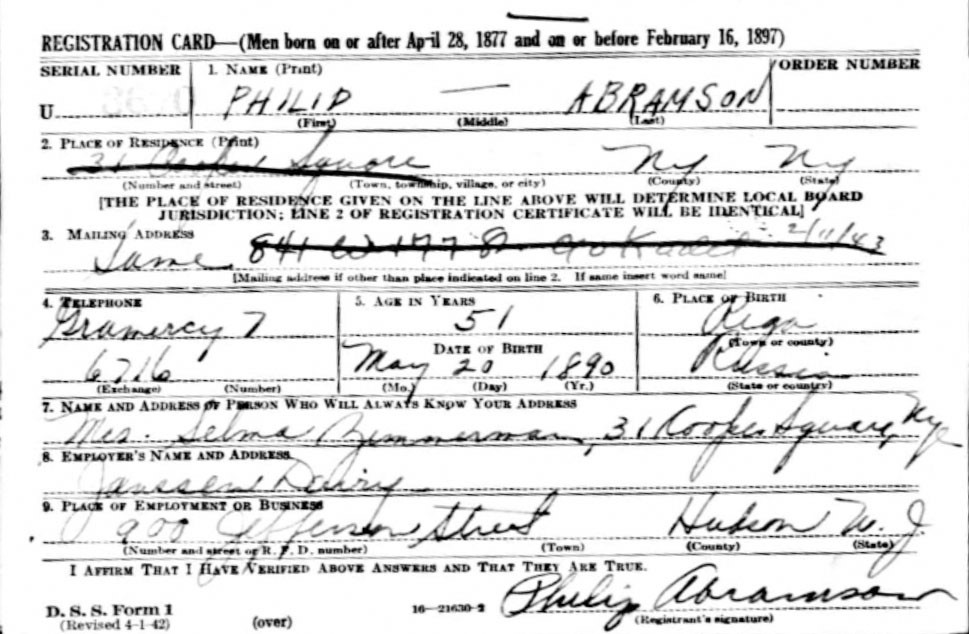 REGISTRATION CARD—(Men born on or after April 28, 1877 and on or before February 16, 1897)
SERIAL NUMBER 1. NAME (Print) ORDER NUMBER
U PHILIP — ABRAMSON
(First) (Middle) (Last)
2. PLACE OF RESIDENCE (Print)
31 Cooper Square NY NY
(Number and street) (Town, township, village, or city) (County) (State)
[THE PLACE OF RESIDENCE GIVEN ON THE LINE ABOVE WILL DETERMINE LOCAL BOARD
JURISDICTION; LINE 2 OF REGISTRATION CERTIFICATE WILL BE IDENTICAL]
3. MAILING ADDRESS
Same 841 W 177 St 2/11/43
[Mailing address if other than place indicated on line 2. If same insert word same]
4. TELEPHONE 5. AGE IN YEARS 6. PLACE OF BIRTH
Gramercy 7 51 Riga
(Town or county)
DATE OF BIRTH
6216 May 20 1890 Russia
(Exchange) (Number) (Mo.) (Day) (Yr.) (State or country)
7. NAME AND ADDRESS OF PERSON WHO WILL ALWAYS KNOW YOUR ADDRESS
Mrs. Selma Zimmerman, 31 Cooper Square, NYC
8. EMPLOYER'S NAME AND ADDRESS
Janssen Dairy
9. PLACE OF EMPLOYMENT OR BUSINESS
900 Jefferson Street Hudson N.J.
(Number and street or R. F. D. number) (Town) (County) (State)
I AFFIRM THAT I HAVE VERIFIED ABOVE ANSWERS AND THAT THEY ARE TRUE.
Philip Abramson
D. S. S. Form 1 16—21630-2 (Registrant's signature)
(Revised 4-1-42) (over)